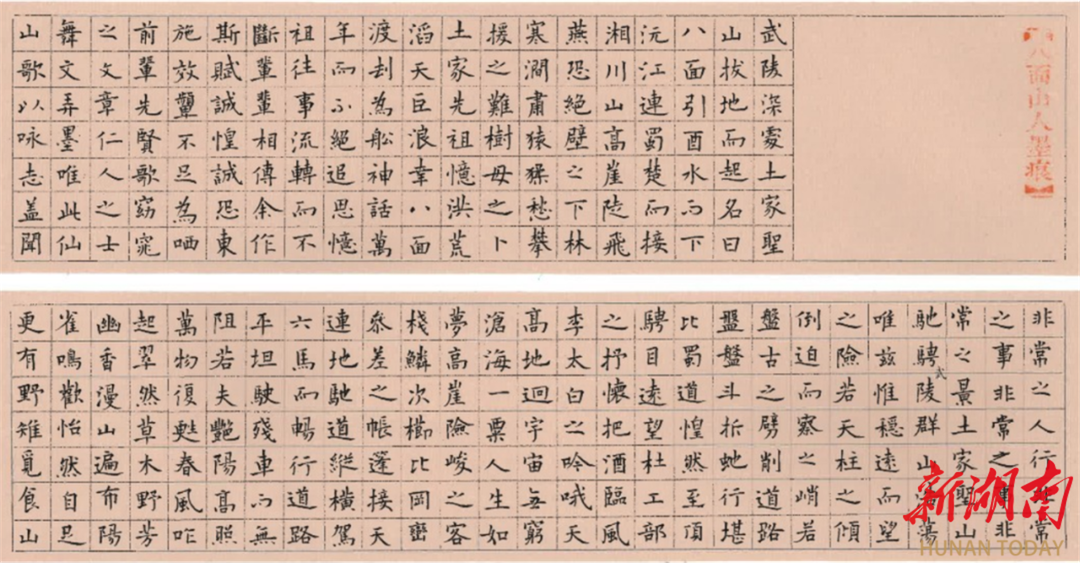 【八面山人墨痕】
武陵深處土家聖
山拔地而起名曰
八面引酉水而下
沅江連蜀楚而接
湘川山高崖陡飛
燕恐絕壁之下林
寒澗肅猿猱愁攀
援之難樹母之卜
土家先祖憶洪荒
滔天巨浪幸八面
渡刦為船神話萬
年而不絕追思憶
祖往事流轉而不
斷輩輩相傳余作
斯賦誠惶誠恐東
施效顰不足為哂
前輩先賢歌窈窕
之文章仁人之士
舞文弄墨唯此仙
山歌以咏志蓋聞
非常之人行非常
之事非常之非
常之景土家聖山
馳騁武陵群山蕩
唯兹惟穩遠而望
之險若天柱之傾
倒迫而察之峭若
盤古之劈削道路
盤盤斗折虵行堪
比蜀道惶然至頂
騁目遠望杜工部
之抒懷把酒臨風
李太白之吟哦天
高地迥宇宙無窮
滄海一粟人生如
夢高崖險峻之客
棧鱗次櫛比岡巒
參差之帳蓬接天
連地馳道縱橫駕
六馬而暢行道路
平坦駛殘車而無
阻若夫艷陽高照
萬物復甦春風咋
起翠然草木野芳
幽香漫山遍布陽
雀鳴歡怡然自足
更有野雉覓食山
新湖南
HUNAN TODAY